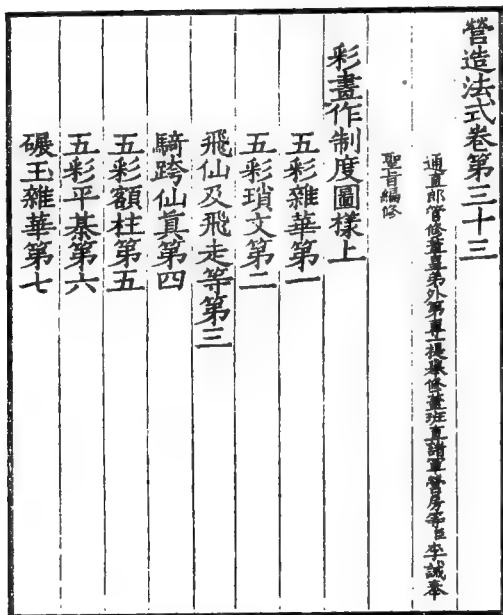 營造法式卷第三十三
通直郎管修蓋皇弟外第專一提舉修蓋班直諸軍營房等臣李誡奉
聖旨編修
彩畫作制度圖樣上
五彩雜華第一
五彩瑣文第二
飛仙及飛走等第三
騎跨仙真第四
五彩額柱第五
五彩平棊第六
碾玉雜華第七